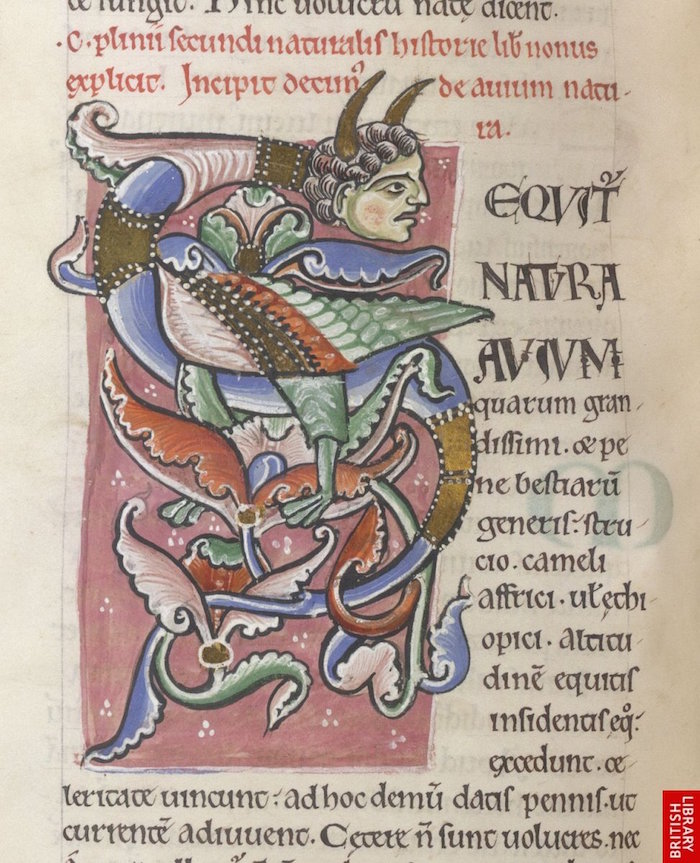 Hinc uolucrū natę dicent.
.C. plinii secundi naturalis historie lib nonus
explicit. Incipit decimꝰ de auium natu-
ra.
SEQVIT᷑
NATVRA
AVIVM
quarum gran-
dissimi. & pe-
ne bestiarū
generis: stru-
cio. cameli
affrici. ul ęthi-
opici. altitu-
dinē equitis
insidentis eq̊:
excedunt. ce-
leritate uincunt: ad hoc demū datis pennis. ut
currentē adiuuent. Cętere n̄ sunt uolucres. nec
BRITISH
LIBRARY